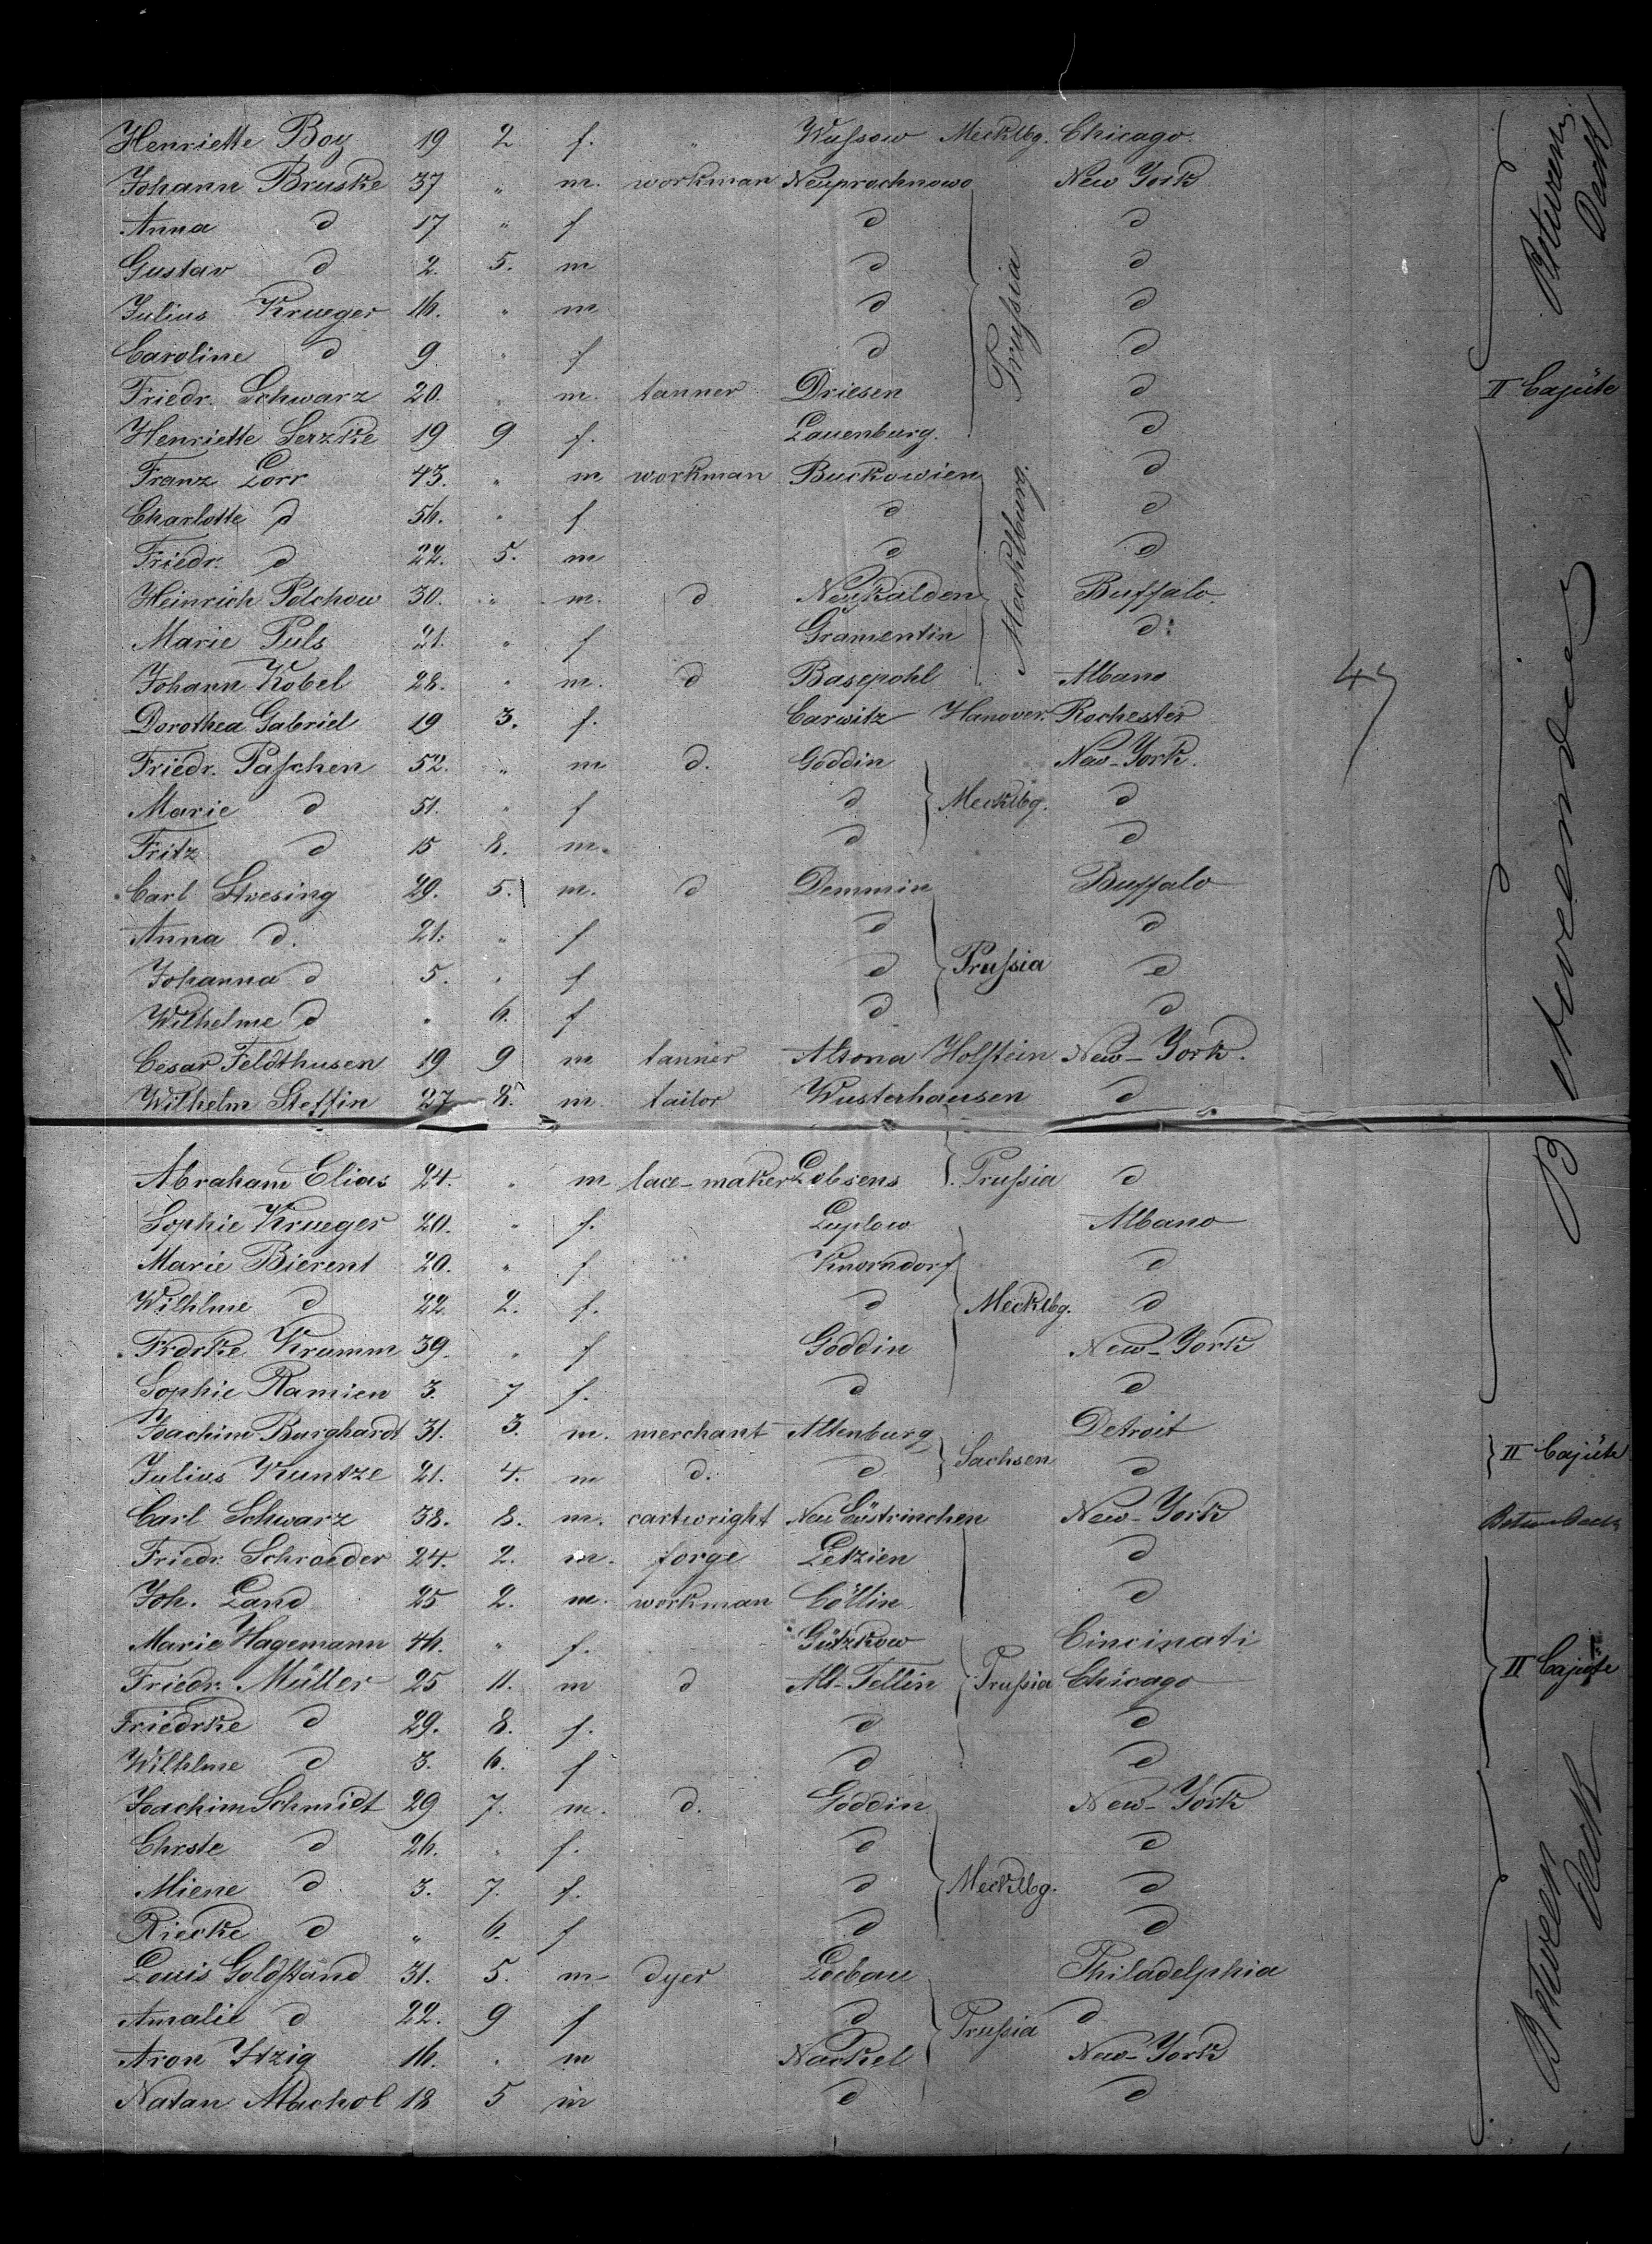 Henriette Boy 19 2 f. " Wussow Mecklbg. Chicago.
Johann Bruske 37 " m. workman Neuprochnowo New York
Anna d 17 " f d d
Gustav d 2. 5. m d Prussia d
Julius Krueger 16. " m d d
Caroline d 9 " f d d
Friedr. Schwarz 20. " m. tanner Driesen d II Cajüte
Henriette Serzke 19 9 f. Lauenburg. d
Franz Lorr 43. " m workman Buckowien d
Charlotte d 56. " f d d
Friedr. d 22. 5. m d Mecklburg. d
Heinrich Polchow 30. " m. d Neukalden Buffalo.
Marie Puls 21. " f Gramentin d
Johann Kobel 28. " m. d Basepohl Albano
Dorothea Gabriel 19 3. f. Carwitz Hanover. Rochester
Friedr. Paschen 52. " m d. Goddin New-York.
Marie d 51. " f d Mecklbg. d
Fritz d 15 8. m. d d
Carl Stresing 29. 5. m. d Demmin Buffalo
Anna d. 21. " f d d
Johanna d 5. " f d Prussia d
Wilhelme d " 6. f d d
Cesar Feldthusen 19 9 m tanner Altona Holstein New-York.
Wilhelm Steffin 27 8. m. tailor Wusterhausen d
Abraham Elias 24. " m lace-maker Lobsens Prussia d
Sophie Krueger 20. " f. Luplow Albano
Marie Bierent 20. " f Knorndorf d
Wilhlme d 22. 2. f. d Mecklbg. d
Frdrke Krumm 39. " f Goddin New-York
Sophie Ramien 3. 7 f. d d
Joachim Burghardt 31. 3. m. merchant Altenburg Detroit
Julius Kuntze 21. 4. m d. d Sachsen d II Cajüte
Carl Schwarz 38. 8. m. cartwright Neu Cüstrinchen New-York
Friedr. Schroeder 24. 2. m. forge Letzien d
Joh. Land 25 2. m. workman Cöllin d
Marie Hagemann 46. " f. Gützkow Cincinati
Friedr. Müller 25 11. m d Alt-Tellin Prussia Chicago II Cajüte
Friedrke d 29. 8. f. d d
Wilhlme d 3. 6. f d d
Joachim Schmidt 29 7. m. d. Goddin New-York
Chrste d 26. " f. d d
Miene d 3. 7. f. d Mecklbg. d
Riecke d " 6. f d d
Louis Goldstand 31. 5. m dyer Loebau Philadelphia
Amalie d 22. 9 f d Prussia d
Aron Itzig 16. " m Nackel New-York
Natan Machol 18 5 m d d
Between Deck